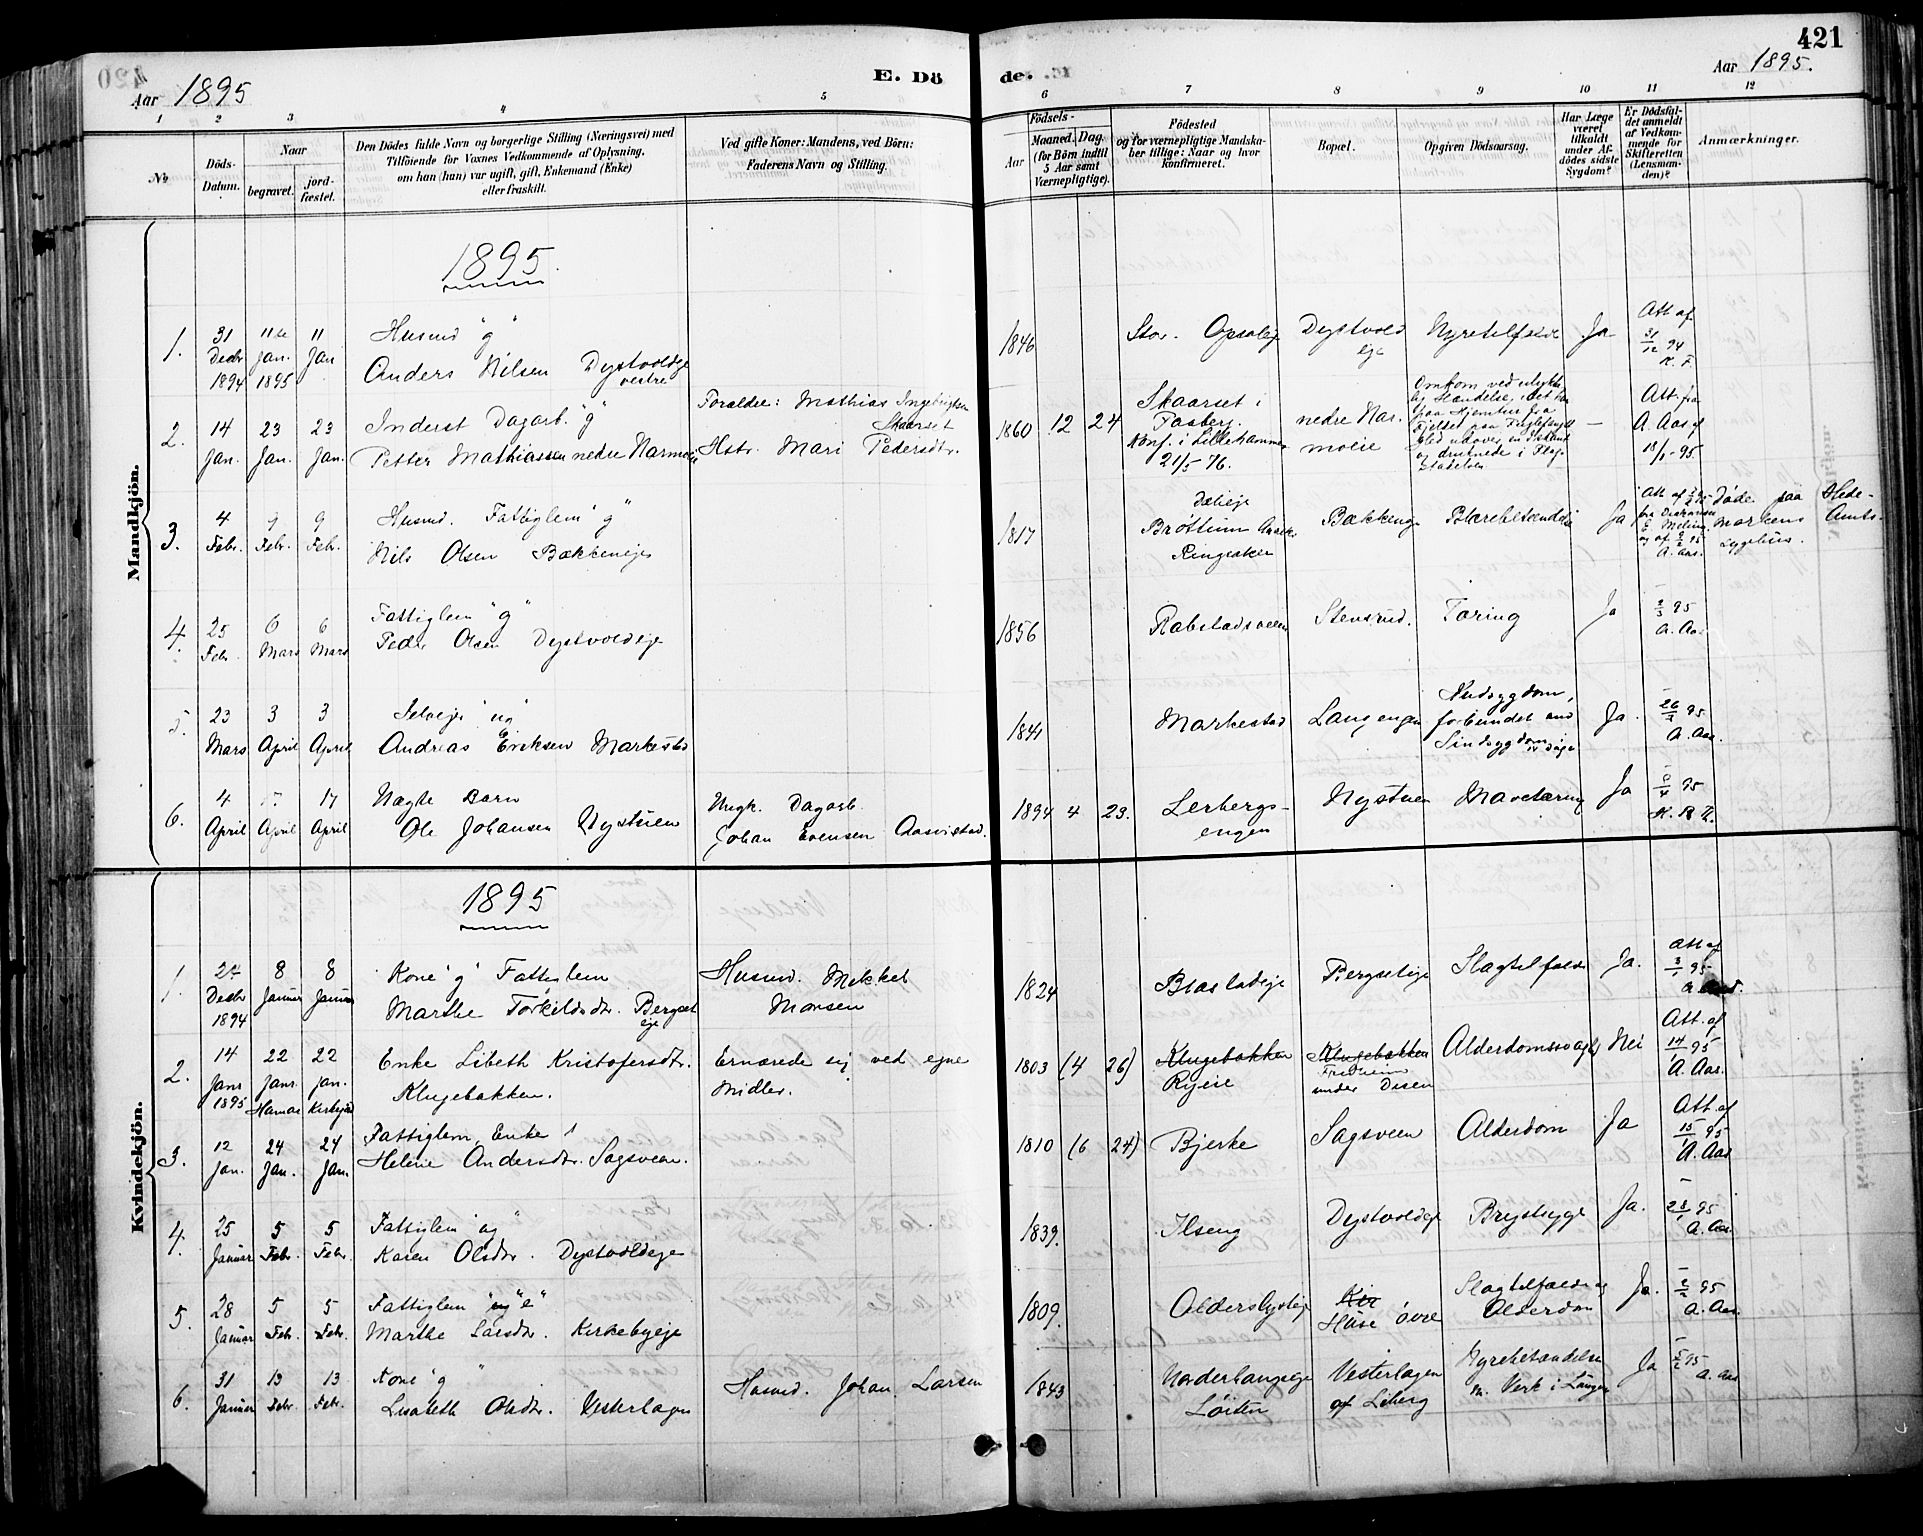 421
Aar 1895
E. Dö
de.
Aar 1895.
1
2
3
4
5
6
7
8
9
10
11
12
No
Döds-
Datum.
Naar
begravet.
jord-
fæstet.
Den Dödes fulde Navn og borgerlige Stilling (Næringsvei) med
Tilföiende for Voxnes Vedkommende af Oplysning,
om han (hun) var ugift, gift, Enkemand (Enke)
eller fraskilt.
Ved gifte Koner: Mandens, ved Börn:
Faderens Navn og Stilling.
Födsels-
Aar
Maaned.
Dag.
(for Börn indtil
5 Aar samt
Værnepligtige).
Födested
og for værnepligtige Mandska-
ber tillige: Naar og hvor
konfirmeret.
Bopæl.
Opgiven Dödsaarsag.
Har Læge
været
tilkaldt
under Af-
dödes sidste
Sygdom?
Er Dödsfal-
det anmeldt
af Vedkom-
mende for
Skifteretten
(Lensman-
den)?
Anmærkninger.
Mandkjön.
1895.
1.
31 Decbr 1894
11te Jan. 1895
11 Jan
Husmd "g"
Anders Nilsen Dystvoldeje
vestre
1846
Stor. Opsaleje
Dystvold
eje
Nyretilfælde
Ja
Att af
31/12 94
2.
14 Jan.
23 Jan.
23 Jan.
Inderst Dagarb. "g"
Petter Mathiassen nedre Narmoeie
Forældre: Mathias Ingebrigtsen
Skaarset
Hstr. Mari Pedersdtr.
1860 12 24
Skaarset i
Faaberg.
Konf. i Lillehammer
21/5 76.
nedre Nar-
moeie
Omkom ved ulykke-
lig Hændelse, idet han
paa Hjemtur fra
Fjeldet
og druknede i Flag-
stadelven
—
Att. fra
A. Aas af
18/1 - 95.
3.
4 Febr.
9 Febr.
9 Febr.
Husmd. Fattiglem "g"
Nils Olsen Bækkeneje
1817
Dæleje
Brøttum Anneks
Ringsaker
Bækkeneje
Blærebetændelse
Ja
A. Aas.
Døde paa Hede-
markens Amts-
sygehus.
4.
25 Febr.
6 Mars
6 Mars
Fattiglem "g"
Peder Olsen Dystvoldeje
1856
Rabstadsveen
Stensrud.
Tæring
Ja
2/3 95
A. Aas
5.
23 Mars
3 April
3 April
Selveje "ug"
Andreas Eriksen Markestad
1841
Markestad
Langengen
forbundet med
Sindssygdom
Ja.
A. Aas.
6.
4 April
April
17 April
Uægte Barn
Ole Johansen Nystuen
Ungk. Dagarb.
Johan Evensen Aasvistad.
1894 4 23.
Lerbergs-
engen
Nystuen
Mavetæring
Ja
Kvindekjön.
1895
1.
24 Decbr 1894
8 Januar
8 Januar
Kone "g" Fattiglem
Marthe Torkildsdtr. Bergset
eje
Husmd. Mikkel
Monsen
1824
Blæstadeje
Bergseteje
Slagtilfælde
Ja.
Att af
3/1 95
A. Aas.
2.
14 Janr 1895
22 Janr. Hamar
22 jan. Kirkegrd
Enke Libeth Kristofersdtr.
Klugebakken.
Ernærede sig ved egne
Midler.
1803 (4 26)
Klugebakken
Ryeie
Klugebakken
Fredheim
under Disen
Alderdomssvaghed
Nei
Att. af
14/1 95
A. Aas.
3.
12 Jan.
24 Jan.
24 Jan.
Fattiglem, Enke
Helene Andersdtr. Sagsveen.
1810 (6 24)
Bjerke
Sagsveen
Alderdom
Ja
Att af
15/1 95
A. Aas
4.
25 Januar
5 Febr.
5 Febr.
Fattiglem "ug"
Karen Olsdtr. Dystvoldeje
1839.
Ilseng
Dystvoldeje
Brystsyge
Ja.
28/1 95
A. Aas.
5.
28 Januar
5 Febr.
5 Febr.
Fattiglem "ug" "e"
Marthe Larsdtr. Kirkebyeje
1809.
Alderslysteje
Kir
Huse øvre
Slagtilfælde og
Alderdom
Ja.
2/2 95
A. Aas
6.
31 Januar
13 Febr.
13 Febr.
Kone "g"
Lisabeth Olsdtr. Vesterhagen
Husmd. Johan Larsen
1843
Norderhangseje
Løiten
Vesterhagen
af Liberg
Nyrebetændelse
m. Verk i Lungen
Ja
5/2 95
A. Aas